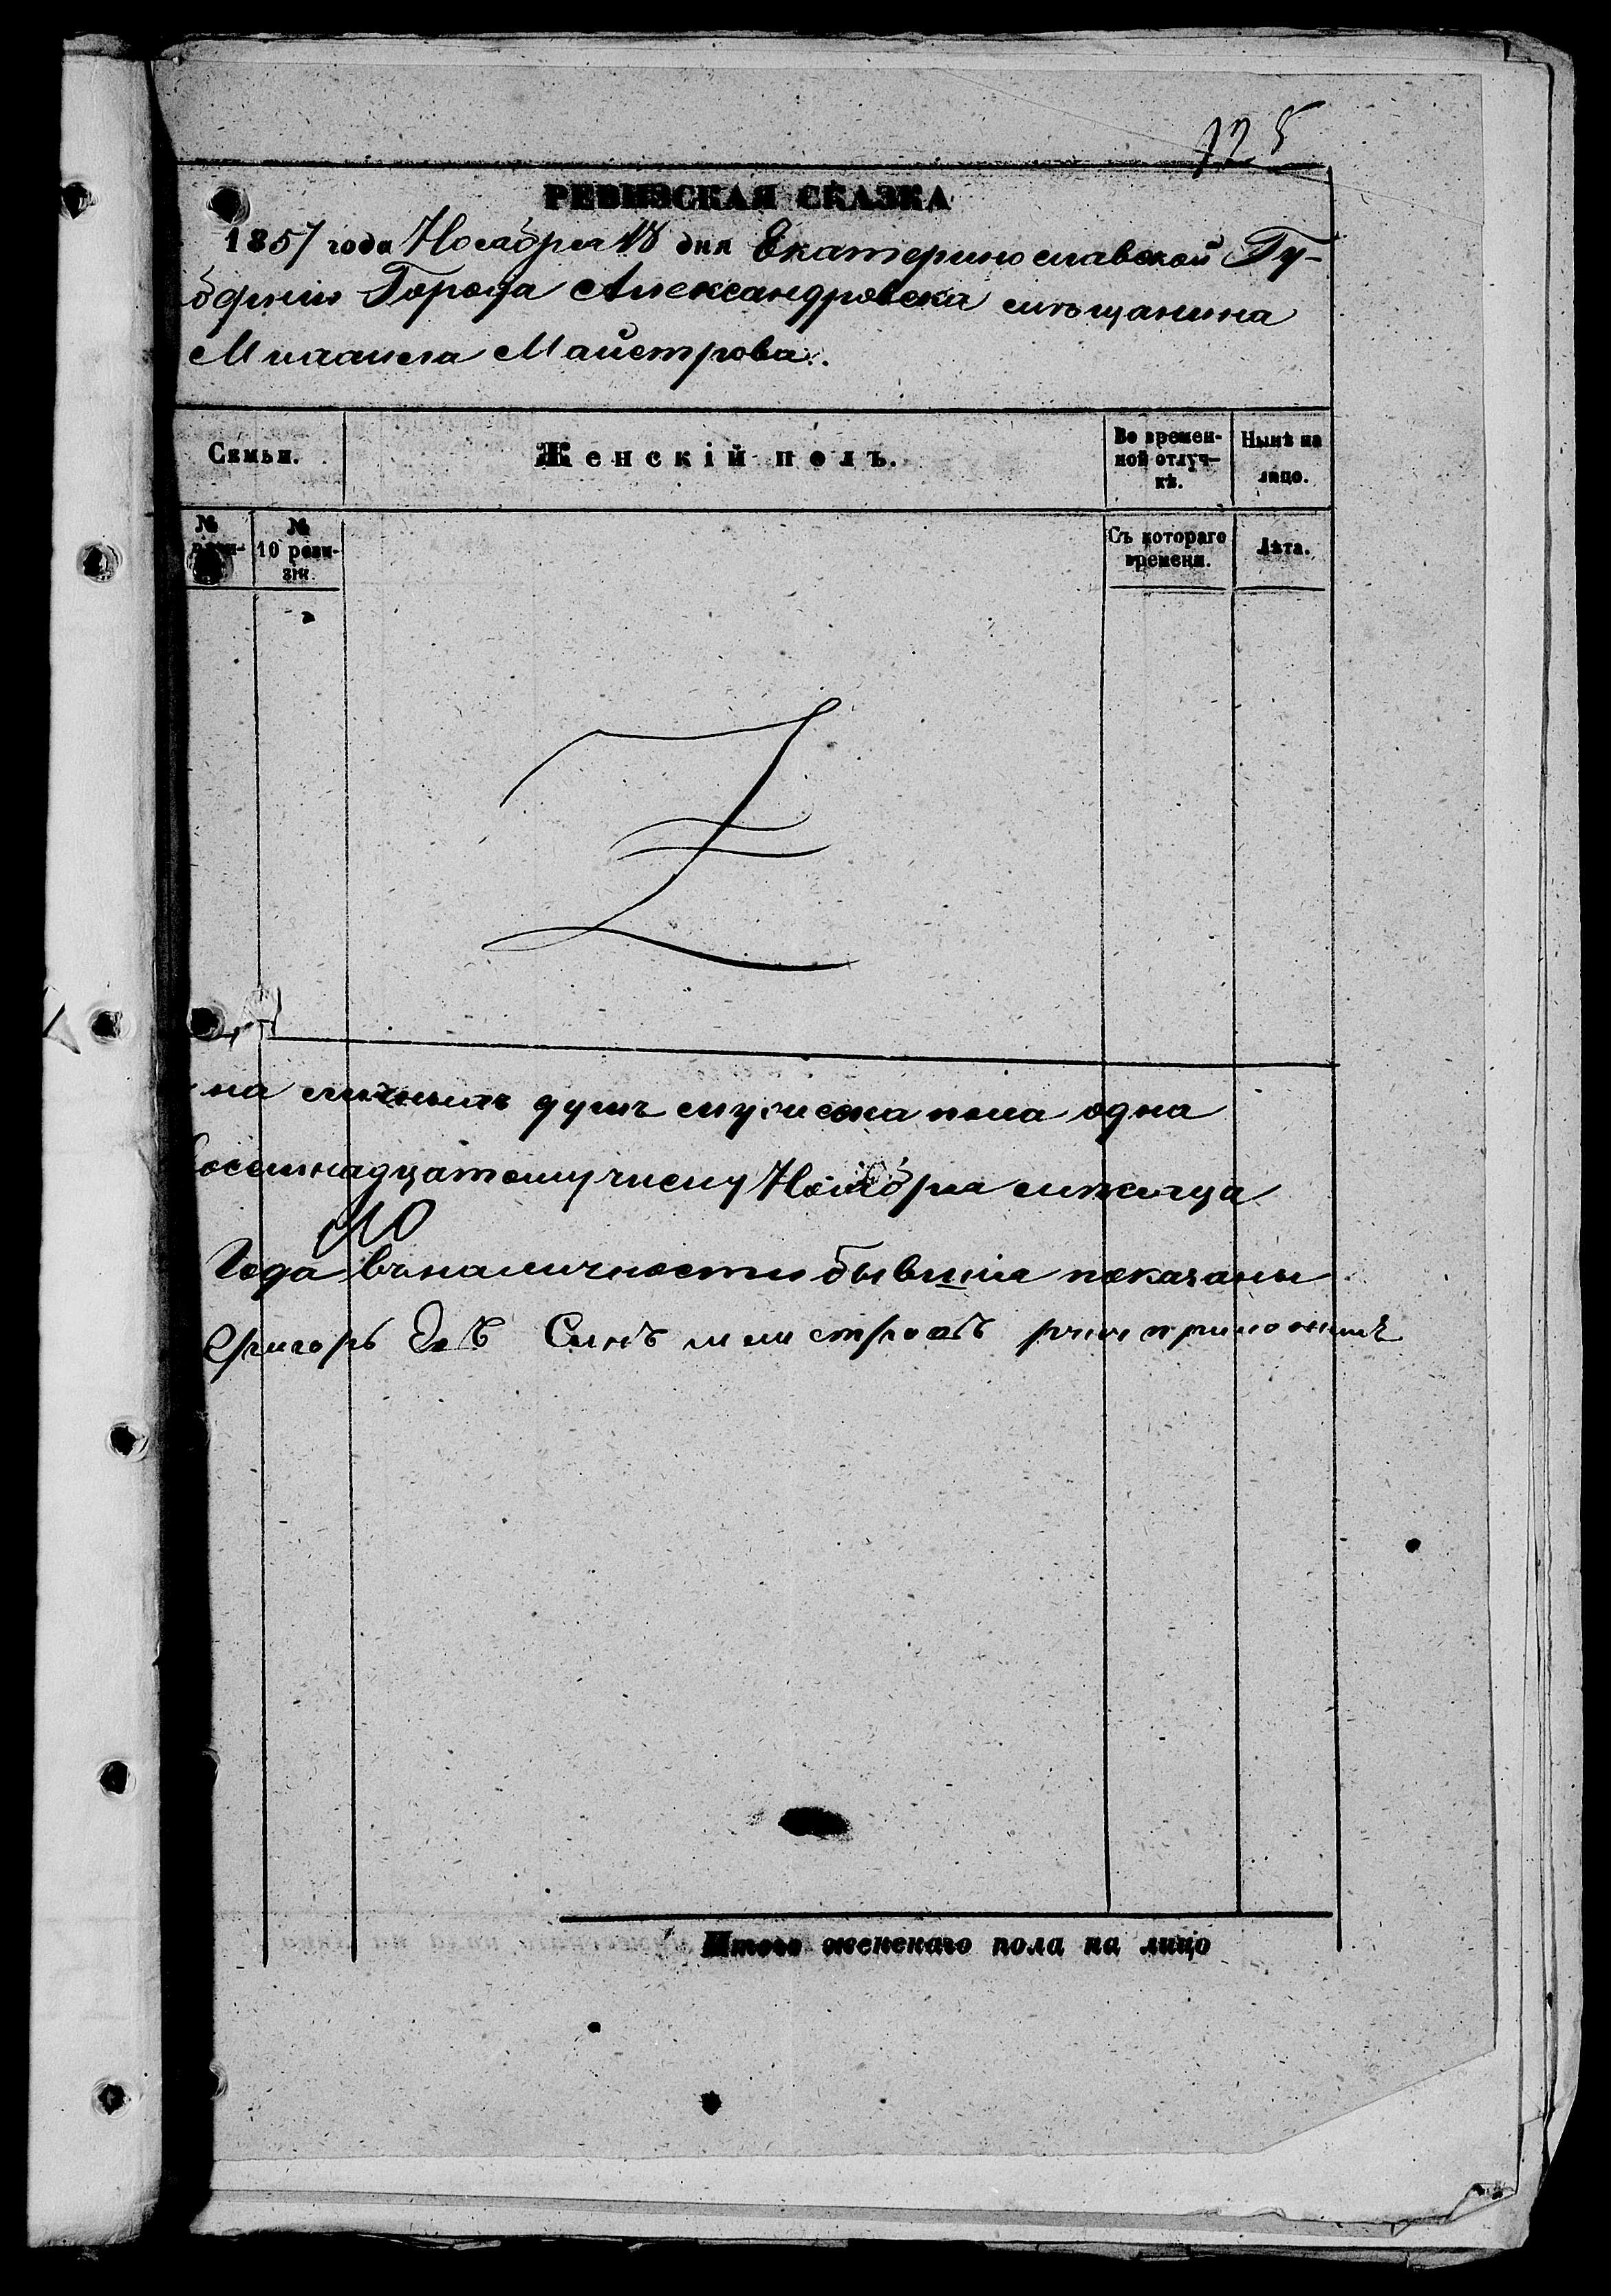 725
РЕВИЗСКАЯ СКАЗКА
1857 года Ноября 18 дня Екатеринославской Гу-
берніи Города Александровска мѣщанина
Михаила Майстрова.
Семьи.
Женскій полъ.
Во времен-
ной отлуч-
кѣ.
Нынѣ на
лицо.
№
реви-
№
10 реви-
зіи.
Съ котораго
времени.
Лѣта.
на личныхъ душъ мужска пола одна
осемнадцатому числу Ноября мѣсяца
Года въ наличности бывшіе показаны
Сынъ
Итого женскаго пола на лицо